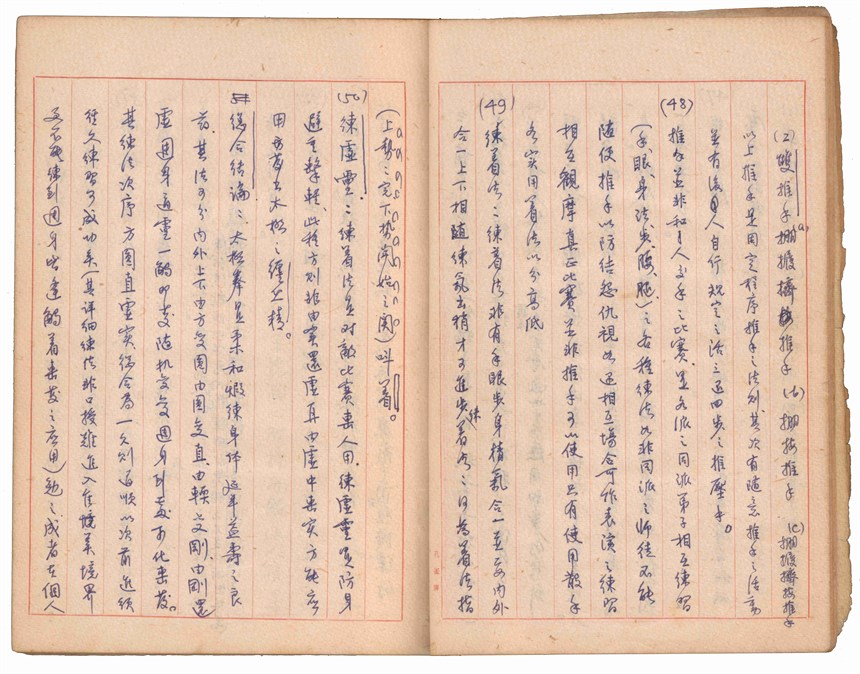 (2)雙推手(a)掤擠按推手(b)掤按推手(c)掤擠按推手
以上推手是固定程序推手之法則其次有隨意推手之活動
並有後人自行規定之活三退四步之推壓手。
(48)推手並非和人交手之比賽是各派之同派弟子相互練習
(手、眼、身法步、腰、腿)之各種練法如非同派之師徒不能
隨便推手以防結怨仇視如逢相互場合可作表演之練習
相互觀摩真正比賽並非推手可以使用只有使用散手
各實用着法以分高低
(49)練着法：練着法非有手眼步身精氣合一至內外
合一上下相隨練氣去精才可進步練着法：何為着法指
(上勢之完下勢開始之間)叫着。
(50)練虛靈：練着法是對敵比賽專人用。練虛靈是防身
避重擊輕此種方則非由實還虛再由虛中出實方能應
用亦為太極之纏土精。
總合結論：太極拳是柔和煅練身体延年益壽之良
葯其法可分內外上下由方變圓由圓變直由輭變剛由剛還
虛週身通靈一觸即發隨机變週身到處可化出發。
其練法次序方圓直虛實綜合為一久則通順以次前進須
經久練習可成功矣(其詳細練法非口授難進入佳境美境界
又不能練到週身皆達觸着出發之應用)勉之成者在個人